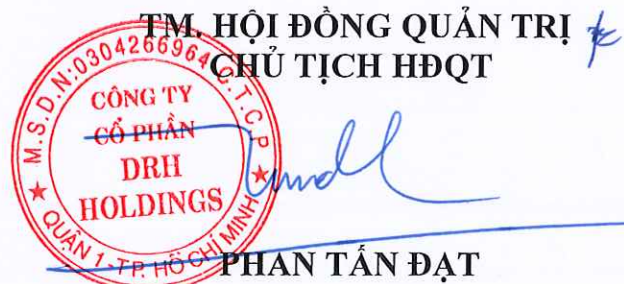 TM. HỘI ĐỒNG QUẢN TRỊ
CHỦ TỊCH HĐQT
M.S.D.N:0304266964-C.T.C.P
CÔNG TY
CỔ PHẦN
DRH
HOLDINGS
QUẬN 1-T.P. HỒ CHÍ MINH
PHAN TẤN ĐẠT